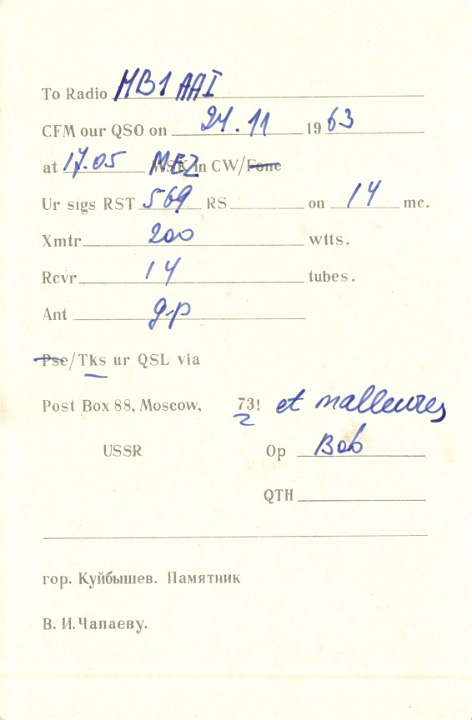 To Radio HB1AAI
CFM our QSO on 24.11 1963
at 17.05 MEZ in CW/Fone
Ur sigs RST 569 RS on 14 mc.
Xmtr 200 wtts.
Rcvr 14 tubes.
Ant gp
Pse/Tks ur QSL via
Post Box 88, Moscow, 73! et malleures
USSR Op Bob
QTH
гор. Куйбышев. Памятник
В. И. Чапаеву.